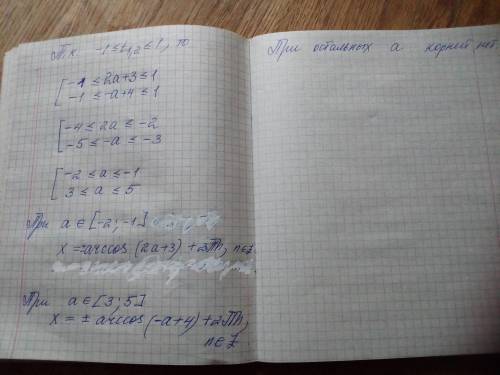 Т.к. -1≤t₁,₂≤1, то
[ -1 ≤ 2a+3 ≤ 1
-1 ≤ -a+4 ≤ 1
[ -4 ≤ 2a ≤ -2
-5 ≤ -a ≤ -3
[ -2 ≤ a ≤ -1
3 ≤ a ≤ 5
При a ∈ [-2; -1]
x = arccos (2a+3) + 2πn, n∈Z
При a ∈ [3; 5]
x = ± arccos (-a+4) + 2πn,
n∈Z
При остальных a корней нет.